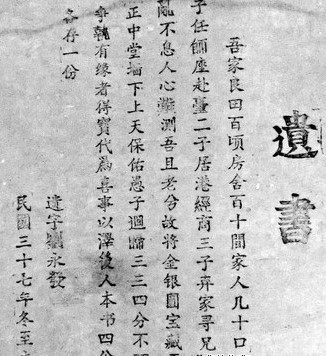 遺書
吾家艮田百頃房舍百十間家人几十口
子任師座赴臺二子居港經商三子弃家尋兄
亂不息人心難測吾且老兮故將金銀圓宝藏
正中堂墙下上天保佑愚子迴歸三三四分不
爭執有缘者得寳代為喜事以澤後人本書四份
各存一份
遺字劉永發
民國三十七年冬至